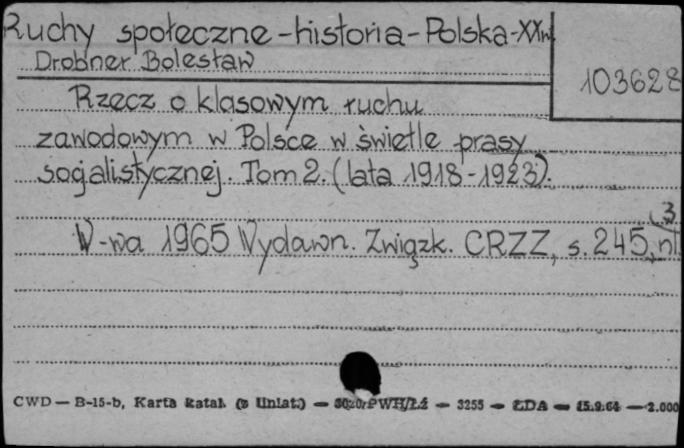 Ruchy społeczne-historia-Polska-XXw.
Drobner Bolesław
103628
Rzecz o klasowym ruchu
zawodowym w Polsce w świetle prasy
socjalistycznej. Tom 2. (lata 1918-1923).
W-wa 1965 Wydawn. Związk. CRZZ, s. 245, nl.
3
CWD — B-15-b, Karta katal. (z Uniat.) — PWH/Łź — 3255 — ŁDA — 15.9.64 — 2.000